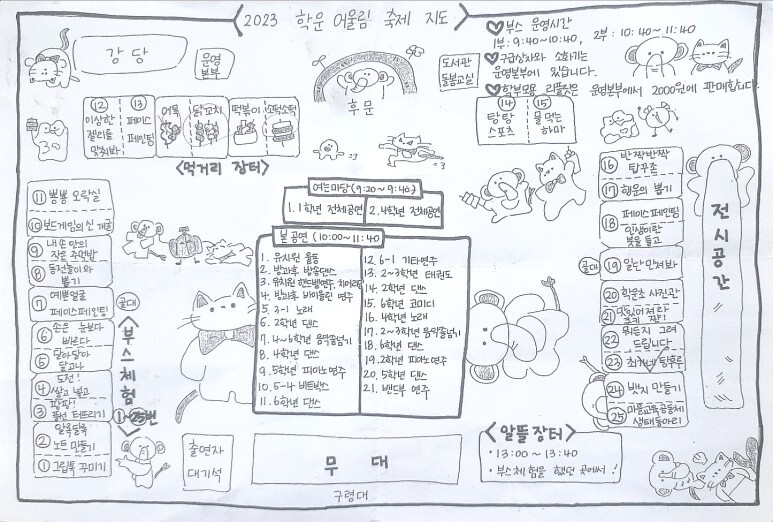 2023 학운 어울림 축제 지도
♡부스 운영시간
1부: 9:40~10:40, 2부: 10:40~11:40
♡구급상자와 소화기는
운영본부에 있습니다.
♡학부모용 리플릿은 운영본부에서 2000원에 판매합니다.
강당
운영
본부
도서관
돌봄교실
후문
⑫
이상한
젤리를
맞춰봐
⑬
페이스
페인팅
어묵
닭꼬치
떡볶이
소떡소떡
<먹거리 장터>
⑭
탕탕
스포츠
⑮
물먹는
하마
⑪ 뽕뽕 오락실
⑩ 보드게임의 신 게임
⑨ 내 손 안의
작은 주먹밥
⑧ 동전놀이와
뽑기
⑦ 예쁜얼굴
페이스페인팅
골대
⑥ 손은 눈보다
빠르다
⑤ 달아달아
달고나
④ 도전!
쌓고 넣고
③ 팡팡!
풍선 터뜨리기
② 알록달록
노트 만들기
① 그립톡 꾸미기
<부스체험>
①~㉕번
여는마당 (9:20~9:40)
1. 1학년 전체공연
2. 4학년 전체공연
본 공연 (10:00~11:40)
1. 유치원 율동
2. 방과후 방송댄스
3. 유치원 핸드벨연주, 치어리딩
4. 방과후 바이올린 연주
5. 3-1 노래
6. 2학년 댄스
7. 4~6학년 음악줄넘기
8. 4학년 댄스
9. 5학년 피아노연주
10. 5-4 비트박스
11. 6학년 댄스
12. 6-1 기타연주
13. 2~3학년 태권도
14. 2학년 댄스
15. 6학년 코미디
16. 4학년 노래
17. 2~3학년 음악줄넘기
18. 6학년 댄스
19. 2학년 피아노연주
20. 5학년 댄스
21. 밴드부 연주
⑯ 반짝반짝
탑꾸존
⑰ 행운의 뽑기
⑱ 페이스페인팅
인생이란
붓을 들고
골대
⑲ 일단 만져봐
⑳ 학운초 사진관
㉑ 맛있어져라
쿠키 쨘!
㉒ 뭐든지 그려
드립니다
㉓ 최게네 탕후루
㉔ 뱃지 만들기
㉕ 마을교육공동체
생태동아리
전시공간
출연자
대기석
무대
구령대
<알뜰장터>
· 13:00~13:40
· 부스체험을 했던 곳에서!